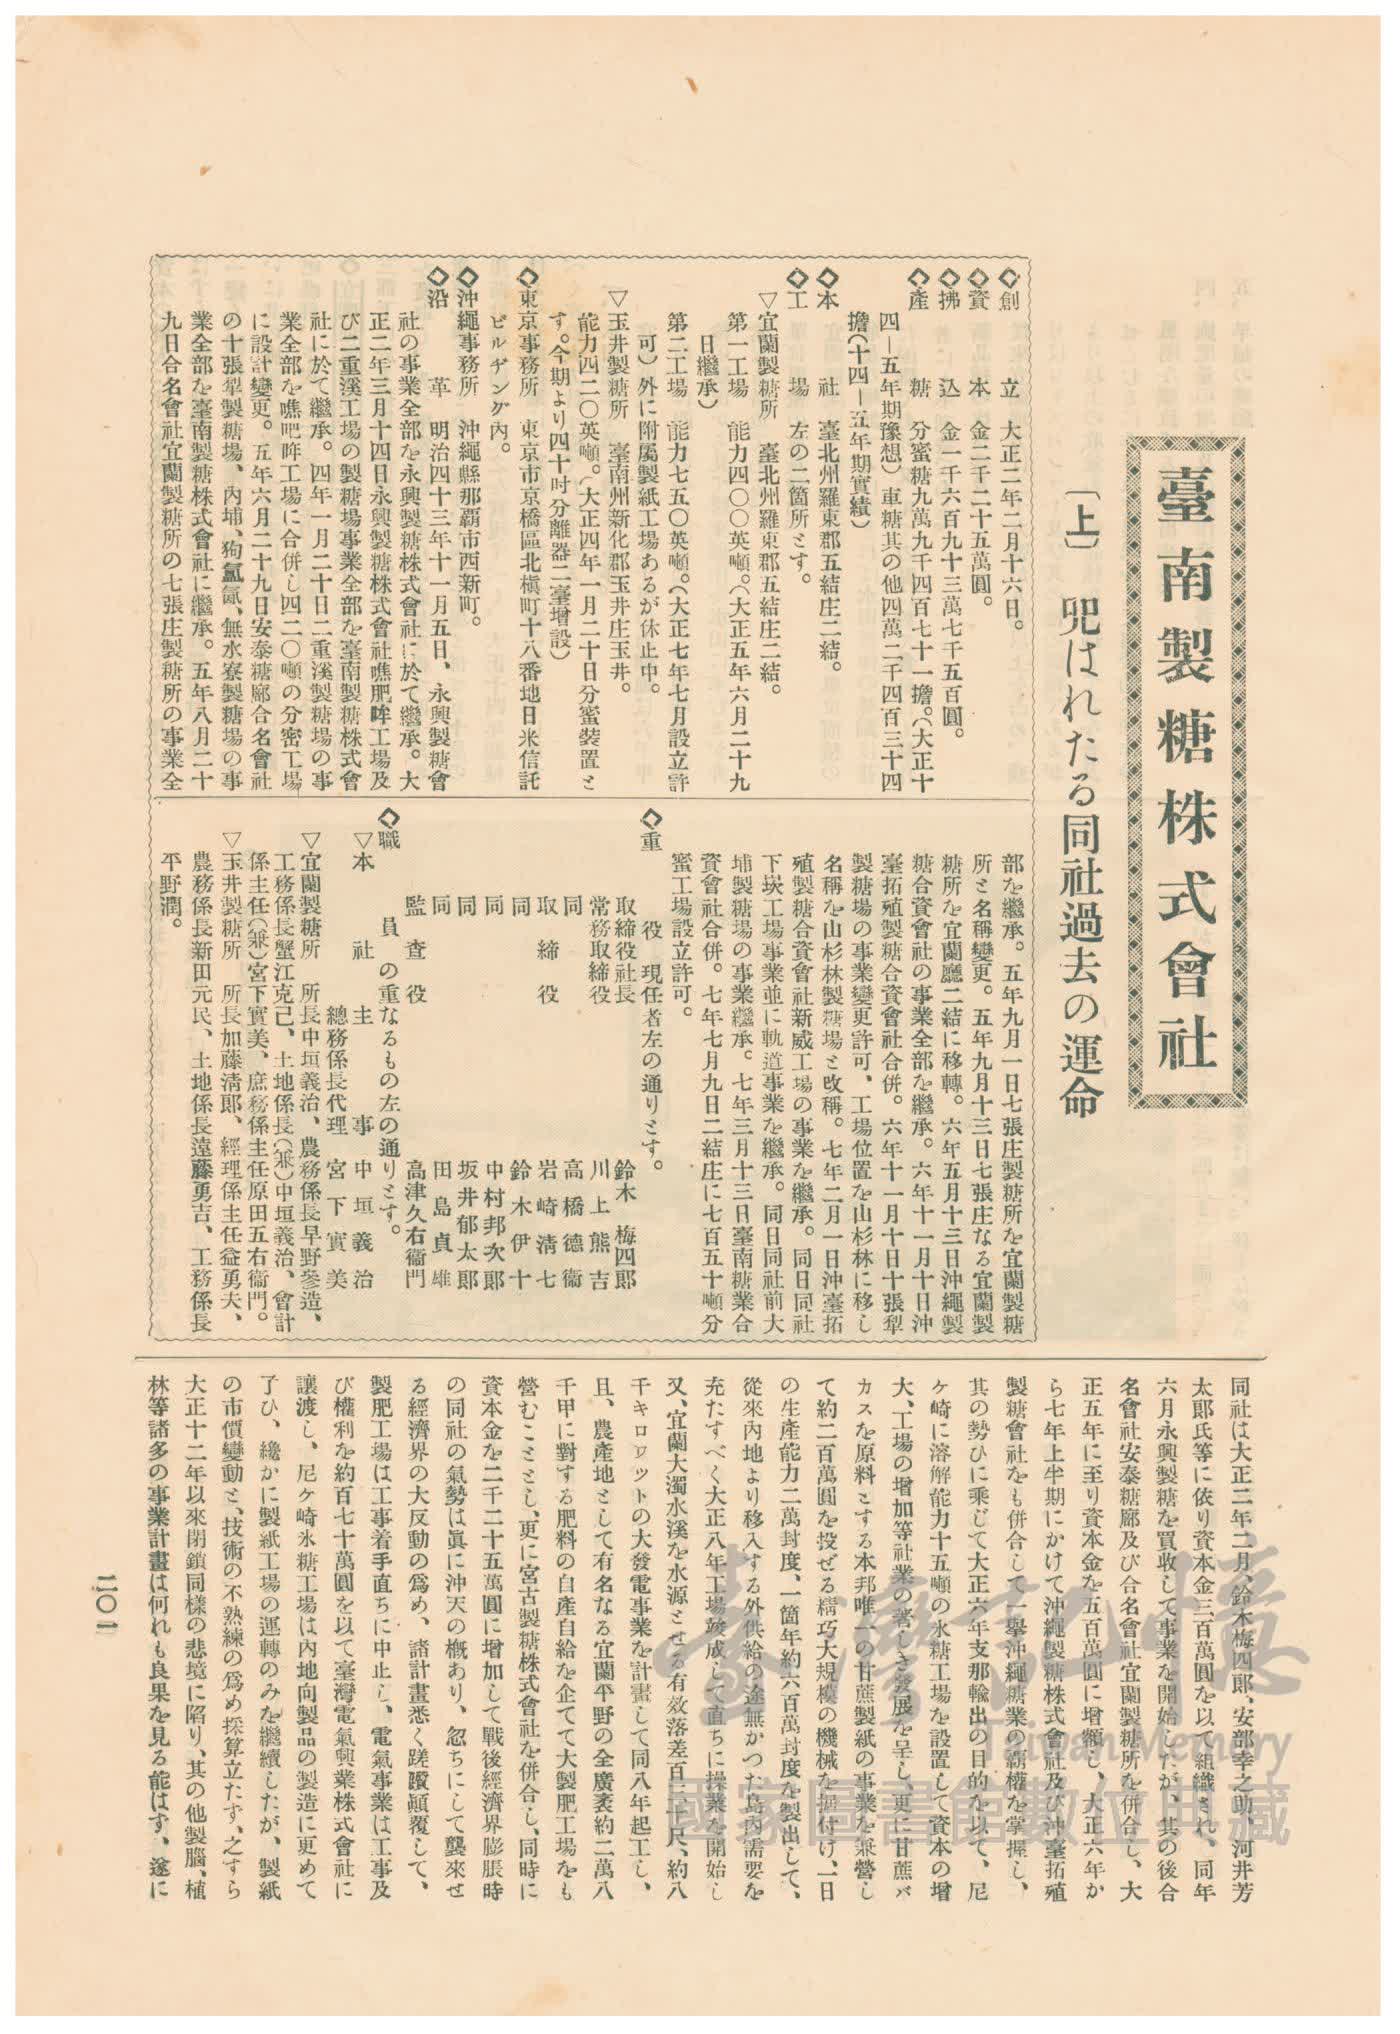 臺南製糖株式會社
〔上〕 呪はれたる同社過去の運命
◇創立 大正二年二月十六日。
◇資本 金二千二十五萬圓。
◇拂込 金一千六百九十三萬七千五百圓。
◇產糖 分蜜糖九萬九千四百七十一擔。(大正十
四―五年期豫想)車糖其の他四萬二千四百三十四
擔(十四―五年期實績)
◇本社 臺北州羅東郡五結庄二結。
◇工場 左の二箇所とす。
▽宜蘭製糖所 臺北州羅東郡五結庄二結。
第一工場 能力四〇〇英噸。(大正五年六月二十九
日繼承)
第二工場 能力七五〇英噸。(大正七年七月設立許
可)外に附屬製紙工場あるが休止中。
▽玉井製糖所 臺南州新化郡玉井庄玉井。
能力四二〇英噸。(大正四年一月二十日分蜜裝置と
す。今期より四十吋分離器二臺增設)
◇東京事務所 東京市京橋區北槇町十八番地日米信託
ビルヂング內。
◇沖繩事務所 沖繩縣那覇市西新町。
◇沿革 明治四十三年十一月五日、永興製糖會
社の事業全部を永興製糖株式會社に於て繼承。大
正二年三月十四日永興製糖株式會社噍肥哖工場及
び二重溪工場の製糖場事業全部を臺南製糖株式會
社に於て繼承。四年一月二十日二重溪製糖場の事
業全部を噍吧哖工場に合併し四二〇噸の分密工場
に設計變更。五年六月二十九日安泰糖廍合名會社
の十張犁製糖場、內埔、狗氳氤、無水寮製糖場の事
業全部を臺南製糖株式會社に繼承。五年八月二十
九日合名會社宜蘭製糖所の七張庄製糖所の事業全
部を繼承。五年九月一日七張庄製糖所を宜蘭製糖
所と名稱變更。五年九月十三日七張庄なる宜蘭製
糖所を宜蘭廳二結に移轉。六年五月十三日沖繩製
糖合資會社の事業全部を繼承。六年十一月十日沖
臺拓殖製糖合資會社合併。六年十一月十日十張犁
製糖場の事業變更許可、工場位置を山杉林に移し
名稱を山杉林製糖場と改稱。七年二月一日沖臺拓
殖製糖合資會社新威工場の事業を繼承。同日同社
下崁工場事業並に軌道事業を繼承。同日同社前大
埔製糖場の事業繼承。七年三月十三日臺南糖業合
資會社合併。七年七月九日二結庄に七百五十噸分
蜜工場設立許可。
◇重役 現任者左の通りとす。
取締役社長 鈴木梅四郎
常務取締役 川上熊吉
同 高橋德衞
取締役 岩崎清七
同 鈴木伊十
同 中村邦次郎
同 坂井郁太郎
同 田島貞雄
監查役 高津久右衞門
◇職員の重なるもの左の通りとす。
▽本社 主事 中垣義治
總務係長代理 宮下實美
▽宜蘭製糖所 所長中垣義治、農務係長早野參造、
工務係長蟹江克己、土地係長(兼)中垣義治、會計
係主任(兼)宮下實美、庶務係主任原田五右衞門。
▽玉井製糖所 所長加藤淸郞、經理係主任益勇夫、
農務係長新田元民、土地係長遠藤勇吉、工務係長
平野潤。
同社は大正二年二月、鈴木梅四郎、安部幸之助、河井芳
太郎氏等に依り資本金三百萬圓を以て組織され、同年
六月永興製糖を買收して事業を開始したが、其の後合
名會社安泰糖廍及び合名會社宜蘭製糖所を併合し、大
正五年に至り資本金を五百萬圓に增額し、大正六年か
ら七年上半期にかけて沖繩製糖株式會社及び沖臺拓殖
製糖會社をも併合して一擧沖繩糖業の覇權を掌握し、
其の勢ひに乘じて大正六年支那輸出の目的を以て、尼
ケ崎に溶解能力十五噸の氷糖工場を設置して資本の增
大、工場の增加等社業の著しき發展を呈し、更に甘蔗バ
カスを原料とする本邦唯一の甘蔗製紙の事業を兼營し
て約二百萬圓を投ぜる精巧大規模の機械を据付け、一日
の生產能力二萬封度、一箇年約六百萬封度を製出して、
從來內地より移入する外供給の途無かつた島內需要を
充たすべく大正八年工場竣成して直ちに操業を開始し
又、宜蘭大濁水溪を水源とせる有效落差百二十尺、約八
千キロワットの大發電事業を計畫して同八年起工し、
且、農產地として有名なる宜蘭平野の全廣袤約二萬八
千甲に對する肥料の自產自給を企てて大製肥工場をも
營むこととし、更に宮古製糖株式會社を併合し、同時に
資本金を二千二十五萬圓に增加して戰後經濟界膨脹時
の同社の氣勢は眞に沖天の槪あり、忽ちにして襲來せ
る經濟界の大反動の爲め、諸計畫悉く蹉跌顚覆して、
製肥工場は工事着手直ちに中止し、電氣事業は工事及
び權利を約百七十萬圓を以て臺灣電氣興業株式會社に
讓渡し、尼ケ崎氷糖工場は內地向製品の製造に更めて
了ひ、纔かに製紙工場の運轉のみを繼續したが、製紙
の市價變動と、技術の不熟練の爲め採算立たず、之すら
大正十二年以來閉鎖同樣の悲境に陷り、其の他製腦、植
林等諸多の事業計畫は何れも良果を見る能はず、遂に
二〇一
臺灣記憶
Taiwan Memory
國家圖書館數位典藏